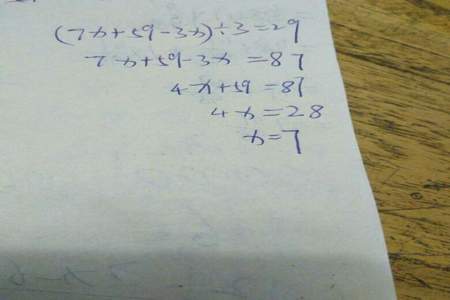 (7x+59-3x)÷3=29
7x+59-3x=87
4x+59=87
4x=28
x=7